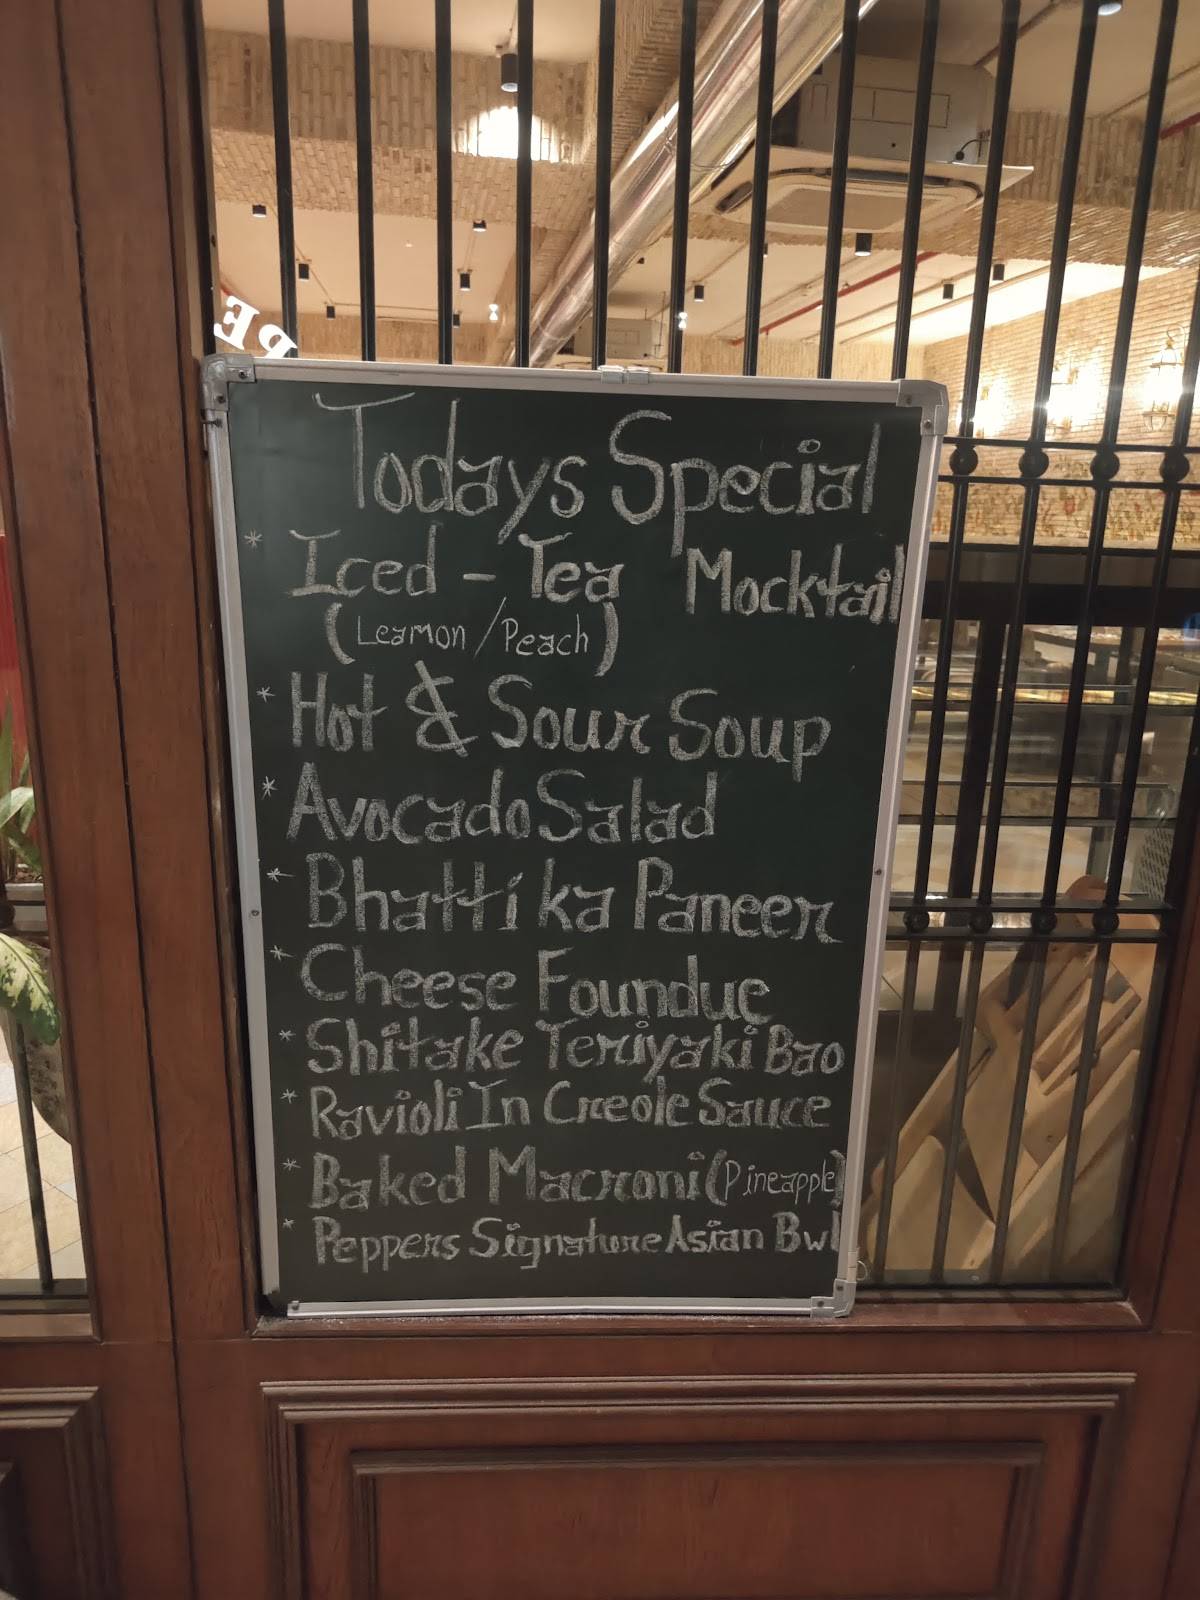 PE
Todays Special
* Iced - Tea Mocktail
(Leamon / Peach)
* Hot & Sour Soup
* Avocado Salad
* Bhatti ka Paneer
* Cheese Foundue
* Shitake Teriyaki Bao
* Ravioli In Creole Sauce
* Baked Macroni (Pineapple)
* Peppers Signature Asian Bwl